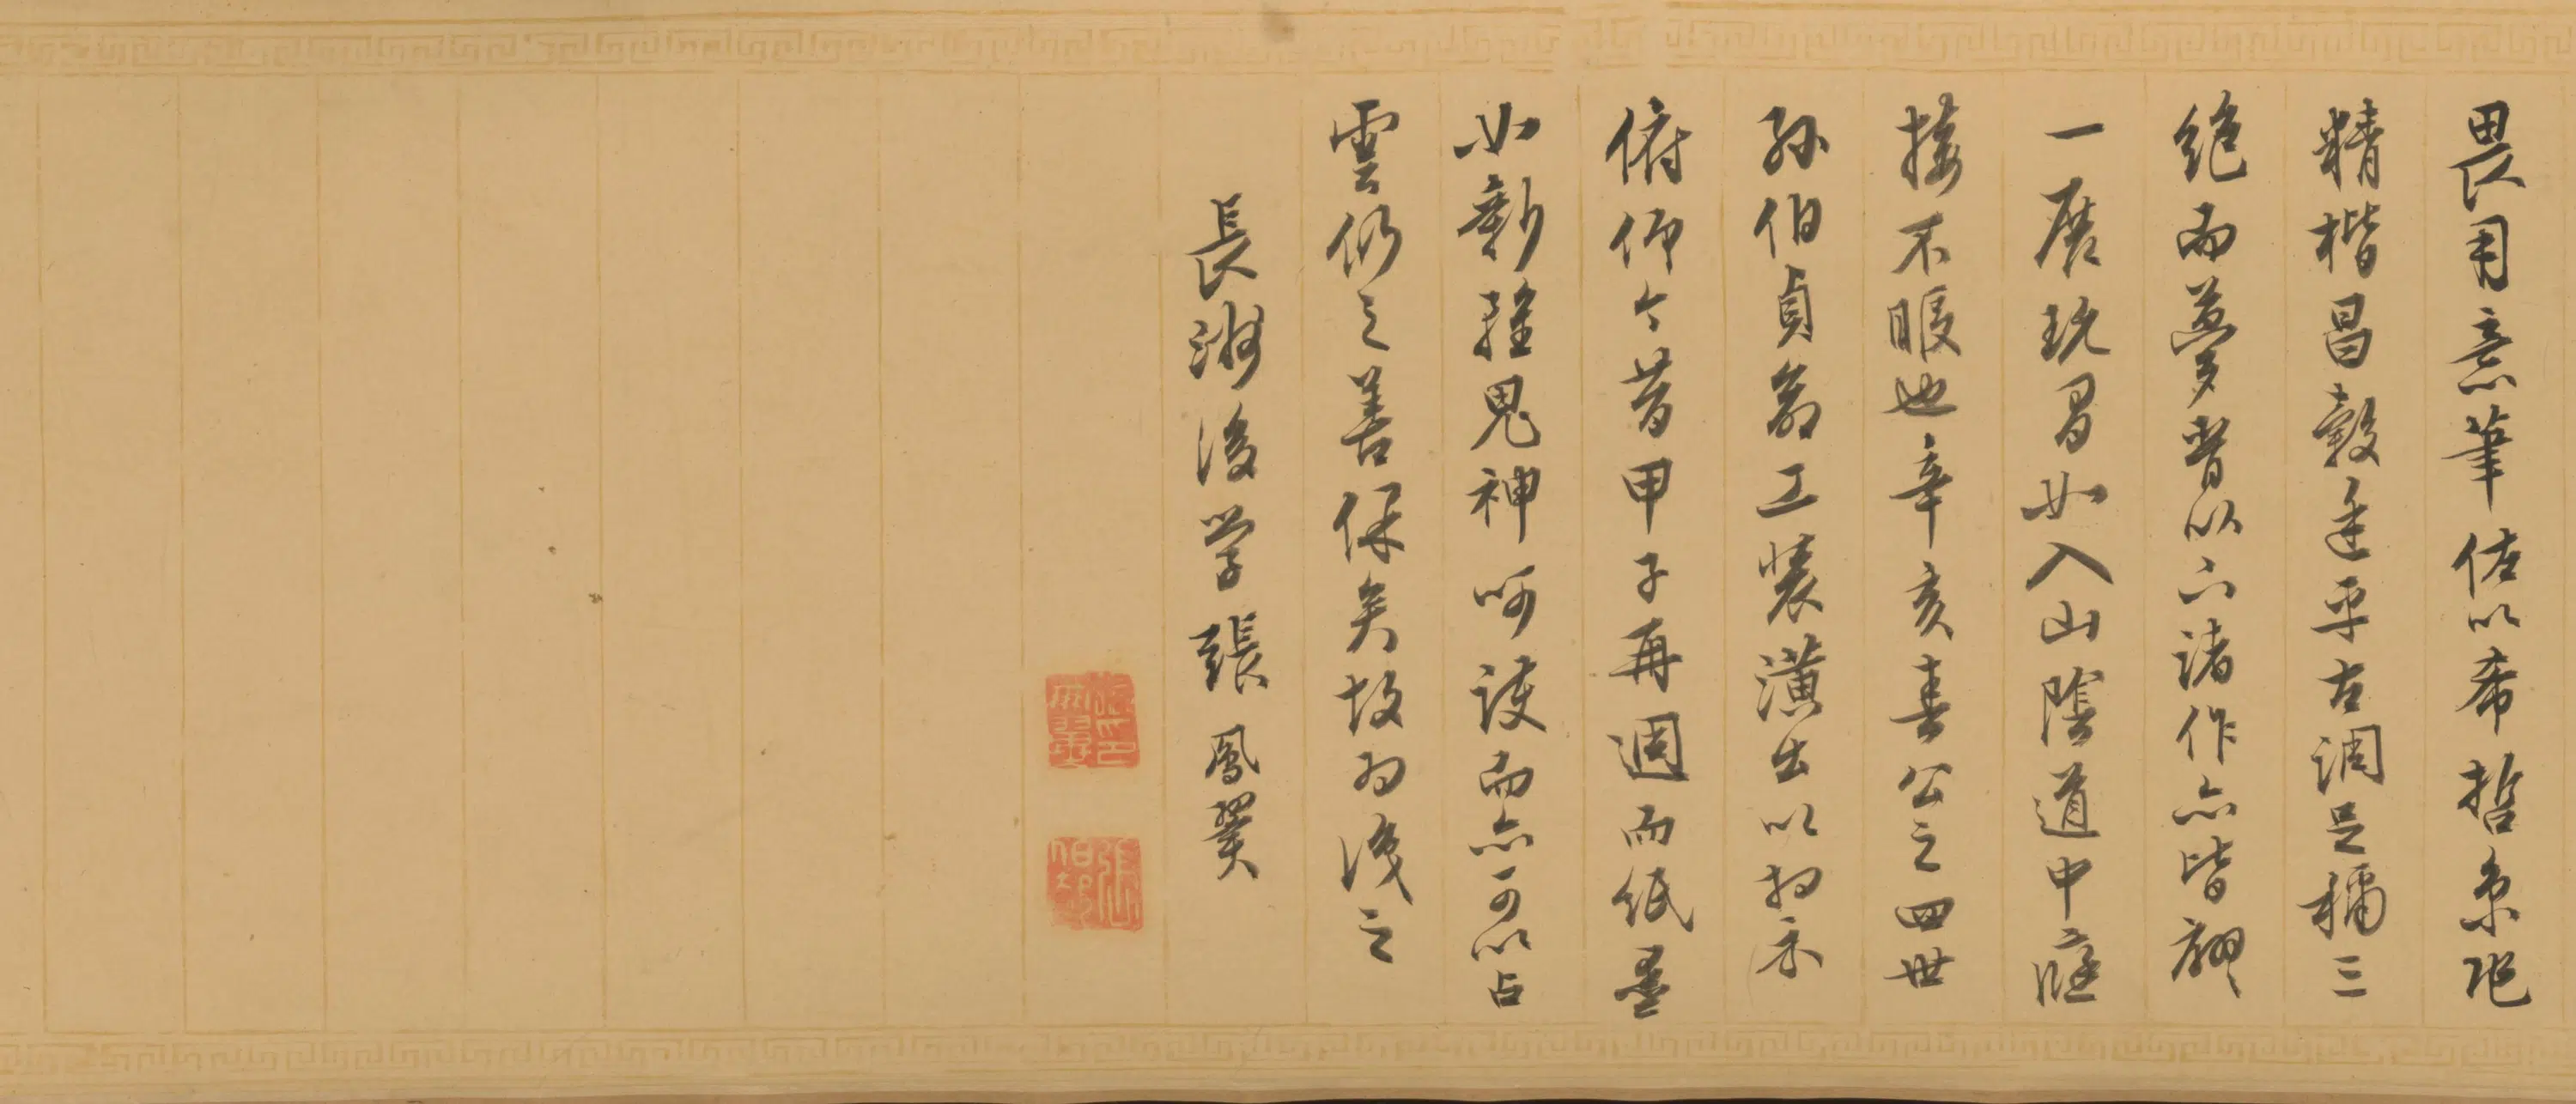 畏用意筆佐以希哲京兆
精楷昌穀逢平古調足稱三
絕而夢晉以下諸作亦皆翩
一展玩習如入山陰道中應
接不暇也辛亥春公之四世
孫伯貞翁工裝潢出以相示
俯仰今昔甲子再週而紙墨
如新雖鬼神呵護而亦可以占
雲仍之善保矣故為識之
長洲後學張鳳翼